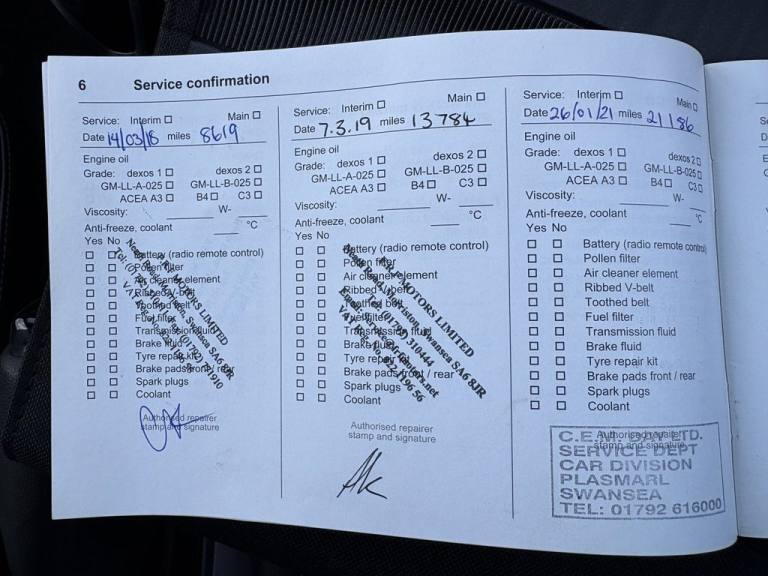 6 Service confirmation
Service: Interim ☐ Main ☐
Date 14/03/18 miles 8619
Engine oil
Grade: dexos 1 ☐ dexos 2 ☐
GM-LL-A-025 ☐ GM-LL-B-025 ☐
ACEA A3 ☐ B4 ☐ C3 ☐
Viscosity: W-
Anti-freeze, coolant °C
Yes No
☐ ☐ Battery (radio remote control)
☐ ☐ Pollen filter
☐ ☐ Air cleaner element
☐ ☐ Ribbed V-belt
☐ ☐ Toothed belt
☐ ☐ Fuel filter
☐ ☐ Transmission fluid
☐ ☐ Brake fluid
☐ ☐ Tyre repair kit
☐ ☐ Brake pads front / rear
☐ ☐ Spark plugs
☐ ☐ Coolant
MOTORS LIMITED
Swansea SA6 8JR
Authorised repairer
stamp and signature
Service: Interim ☐ Main ☐
Date 7.3.19 miles 13784
Engine oil
Grade: dexos 1 ☐ dexos 2 ☐
GM-LL-A-025 ☐ GM-LL-B-025 ☐
ACEA A3 ☐ B4 ☐ C3 ☐
Viscosity: W-
Anti-freeze, coolant °C
Yes No
☐ ☐ Battery (radio remote control)
☐ ☐ Pollen filter
☐ ☐ Air cleaner element
☐ ☐ Ribbed V-belt
☐ ☐ Toothed belt
☐ ☐ Fuel filter
☐ ☐ Transmission fluid
☐ ☐ Brake fluid
☐ ☐ Tyre repair kit
☐ ☐ Brake pads front / rear
☐ ☐ Spark plugs
☐ ☐ Coolant
MOTORS LIMITED
Swansea SA6 8JR
Tel: (01792) 310444
Authorised repairer
stamp and signature
Service: Interim ☐ Main ☐
Date 26/01/21 miles 21186
Engine oil
Grade: dexos 1 ☐ dexos 2 ☐
GM-LL-A-025 ☐ GM-LL-B-025 ☐
ACEA A3 ☐ B4 ☐ C3 ☐
Viscosity: W-
Anti-freeze, coolant °C
Yes No
☐ ☐ Battery (radio remote control)
☐ ☐ Pollen filter
☐ ☐ Air cleaner element
☐ ☐ Ribbed V-belt
☐ ☐ Toothed belt
☐ ☐ Fuel filter
☐ ☐ Transmission fluid
☐ ☐ Brake fluid
☐ ☐ Tyre repair kit
☐ ☐ Brake pads front / rear
☐ ☐ Spark plugs
☐ ☐ Coolant
Authorised repairer
stamp and signature
C.E.M. DAY LTD.
SERVICE DEPT
CAR DIVISION
PLASMARL
SWANSEA
TEL: 01792 616000